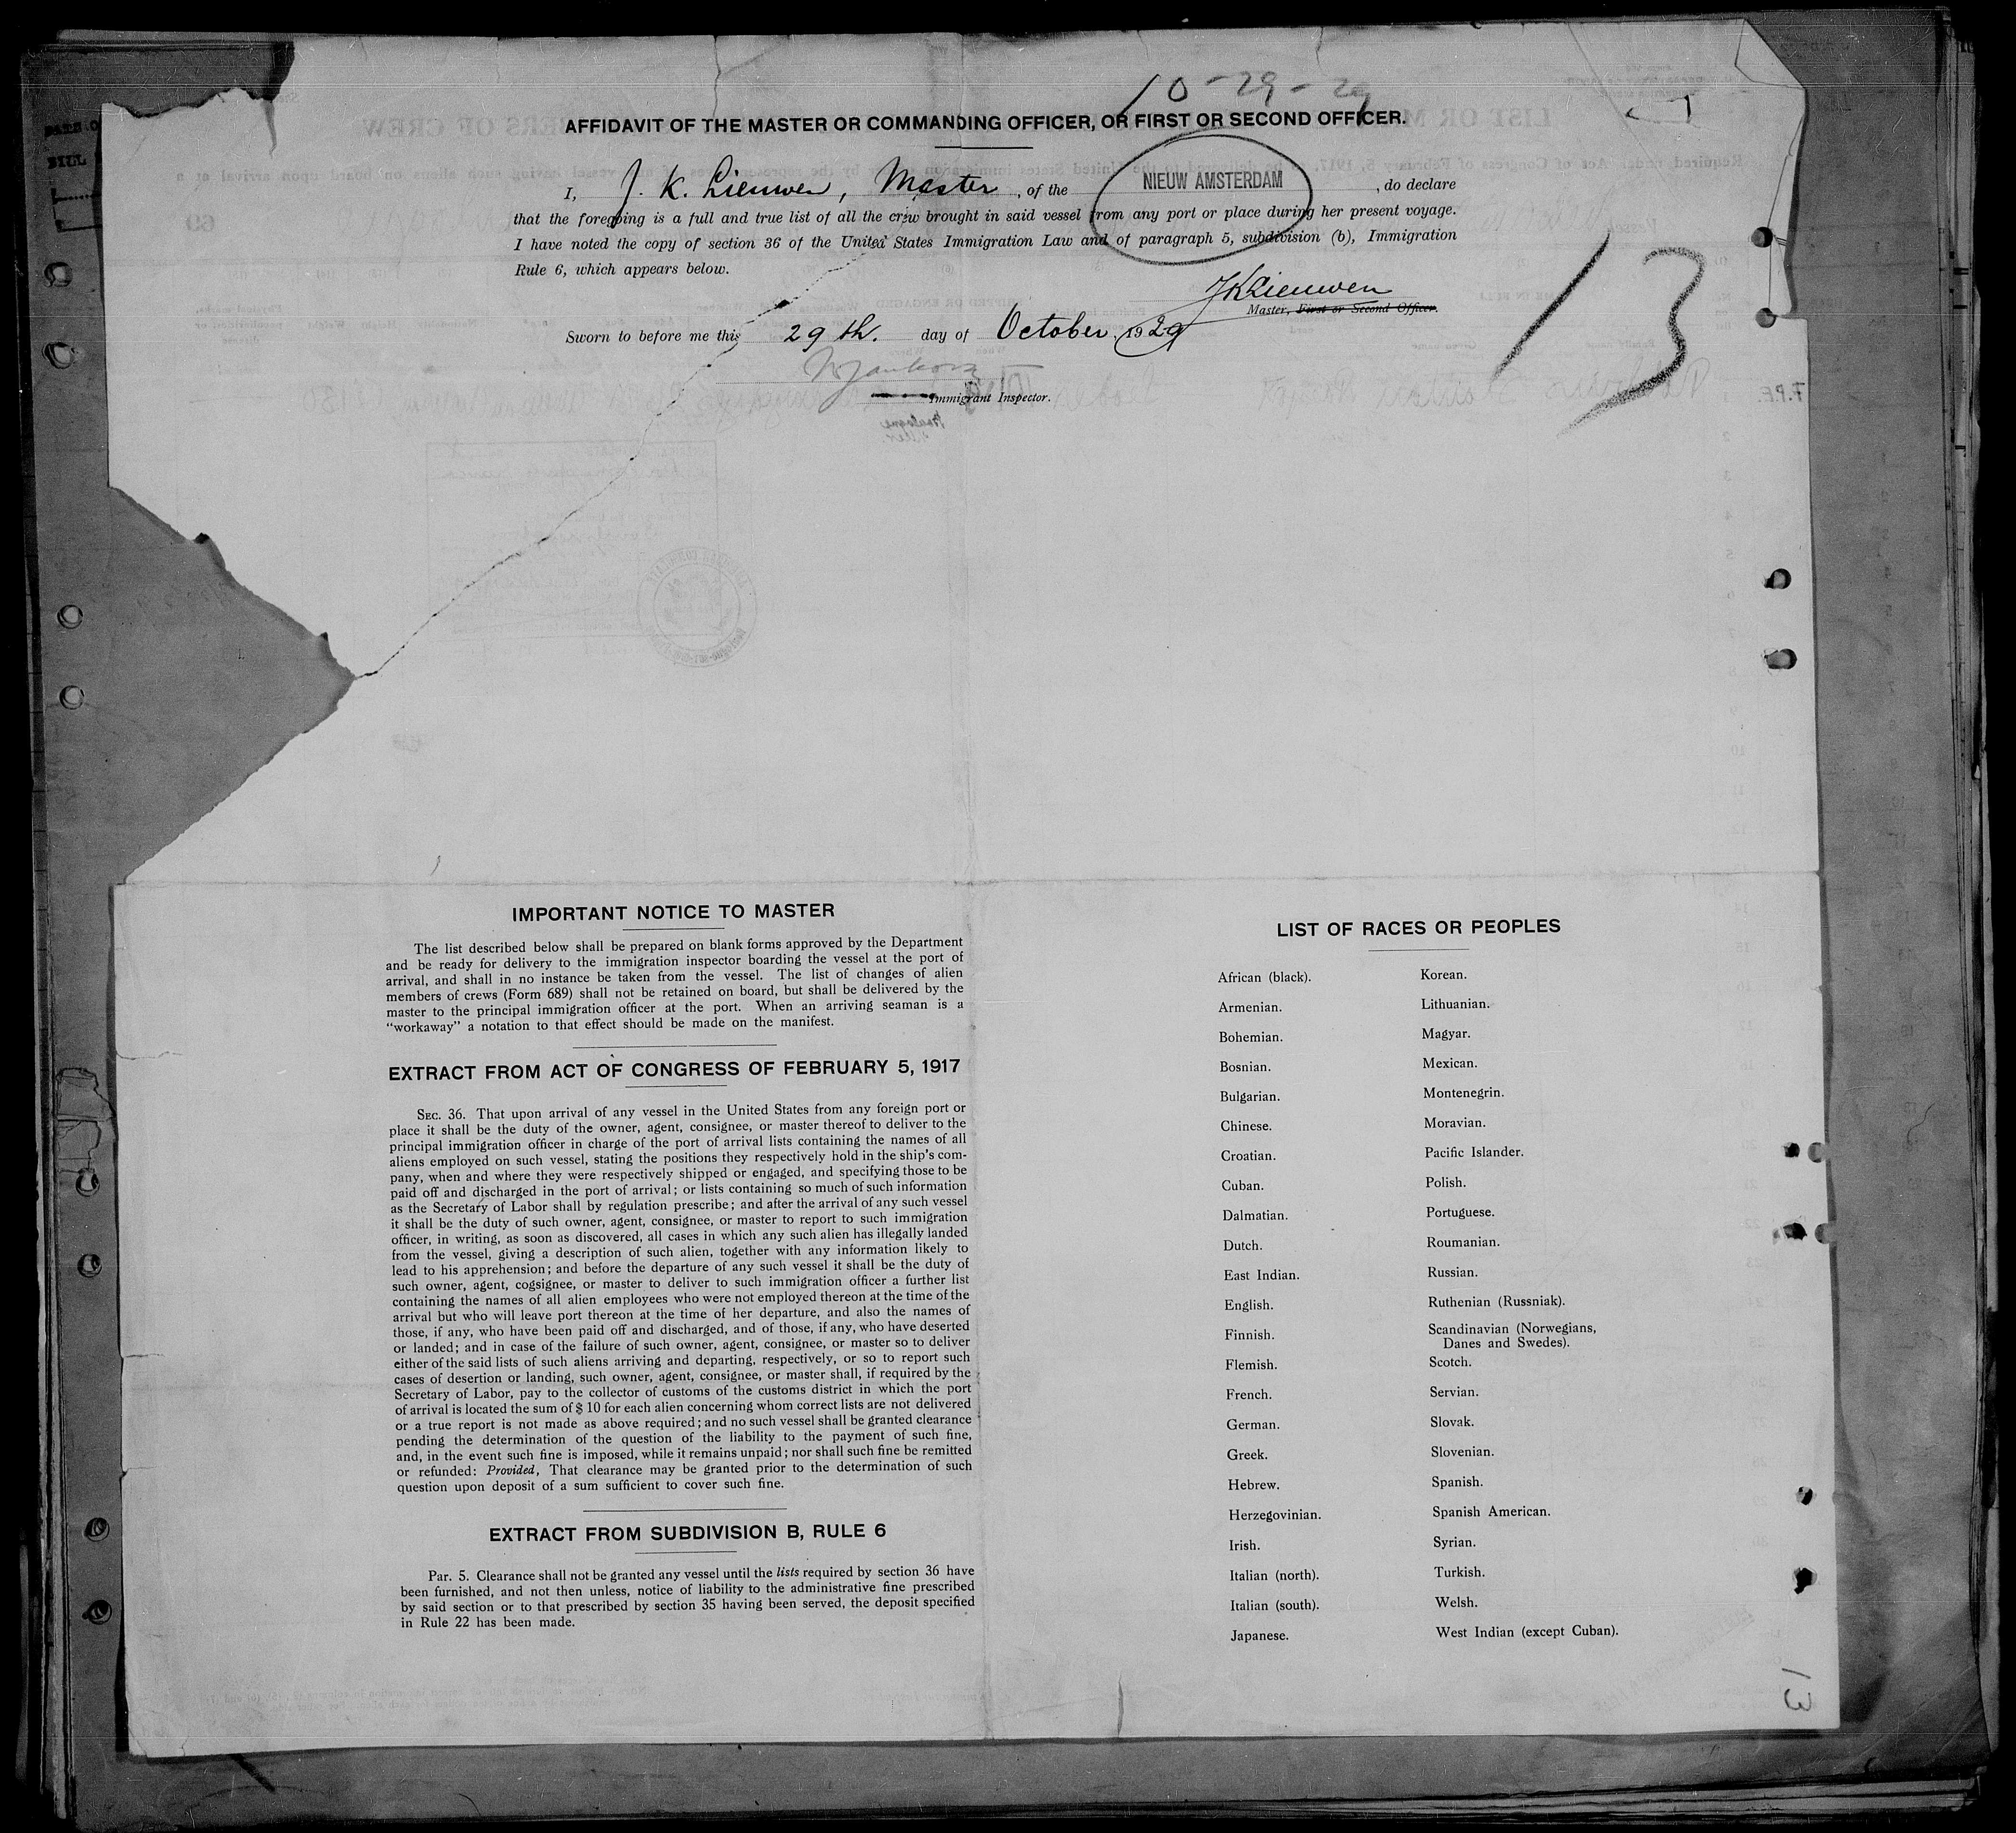 10-29-29
AFFIDAVIT OF THE MASTER OR COMMANDING OFFICER, OR FIRST OR SECOND OFFICER.
I, J. K. Lieuwen, Master, of the NIEUW AMSTERDAM, do declare
that the foregoing is a full and true list of all the crew brought in said vessel from any port or place during her present voyage.
I have noted the copy of section 36 of the United States Immigration Law and of paragraph 5, subdivision (b), Immigration
Rule 6, which appears below.
JKLieuwen
Master, First or Second Officer.
Sworn to before me this 29th. day of October, 1929
Immigrant Inspector.
13
IMPORTANT NOTICE TO MASTER
The list described below shall be prepared on blank forms approved by the Department
and be ready for delivery to the immigration inspector boarding the vessel at the port of
arrival, and shall in no instance be taken from the vessel. The list of changes of alien
members of crews (Form 689) shall not be retained on board, but shall be delivered by the
master to the principal immigration officer at the port. When an arriving seaman is a
“workaway” a notation to that effect should be made on the manifest.
EXTRACT FROM ACT OF CONGRESS OF FEBRUARY 5, 1917
SEC. 36. That upon arrival of any vessel in the United States from any foreign port or
place it shall be the duty of the owner, agent, consignee, or master thereof to deliver to the
principal immigration officer in charge of the port of arrival lists containing the names of all
aliens employed on such vessel, stating the positions they respectively hold in the ship's com-
pany, when and where they were respectively shipped or engaged, and specifying those to be
paid off and discharged in the port of arrival; or lists containing so much of such information
as the Secretary of Labor shall by regulation prescribe; and after the arrival of any such vessel
it shall be the duty of such owner, agent, consignee, or master to report to such immigration
officer, in writing, as soon as discovered, all cases in which any such alien has illegally landed
from the vessel, giving a description of such alien, together with any information likely to
lead to his apprehension; and before the departure of any such vessel it shall be the duty of
such owner, agent, cogsignee, or master to deliver to such immigration officer a further list
containing the names of all alien employees who were not employed thereon at the time of the
arrival but who will leave port thereon at the time of her departure, and also the names of
those, if any, who have been paid off and discharged, and of those, if any, who have deserted
or landed; and in case of the failure of such owner, agent, consignee, or master so to deliver
either of the said lists of such aliens arriving and departing, respectively, or so to report such
cases of desertion or landing, such owner, agent, consignee, or master shall, if required by the
Secretary of Labor, pay to the collector of customs of the customs district in which the port
of arrival is located the sum of $ 10 for each alien concerning whom correct lists are not delivered
or a true report is not made as above required; and no such vessel shall be granted clearance
pending the determination of the question of the liability to the payment of such fine,
and, in the event such fine is imposed, while it remains unpaid; nor shall such fine be remitted
or refunded: Provided, That clearance may be granted prior to the determination of such
question upon deposit of a sum sufficient to cover such fine.
EXTRACT FROM SUBDIVISION B, RULE 6
Par. 5. Clearance shall not be granted any vessel until the lists required by section 36 have
been furnished, and not then unless, notice of liability to the administrative fine prescribed
by said section or to that prescribed by section 35 having been served, the deposit specified
in Rule 22 has been made.
LIST OF RACES OR PEOPLES
African (black).
Armenian.
Bohemian.
Bosnian.
Bulgarian.
Chinese.
Croatian.
Cuban.
Dalmatian.
Dutch.
East Indian.
English.
Finnish.
Flemish.
French.
German.
Greek.
Hebrew.
Herzegovinian.
Irish.
Italian (north).
Italian (south).
Japanese.
Korean.
Lithuanian.
Magyar.
Mexican.
Montenegrin.
Moravian.
Pacific Islander.
Polish.
Portuguese.
Roumanian.
Russian.
Ruthenian (Russniak).
Scandinavian (Norwegians,
Danes and Swedes).
Scotch.
Servian.
Slovak.
Slovenian.
Spanish.
Spanish American.
Syrian.
Turkish.
Welsh.
West Indian (except Cuban).
13